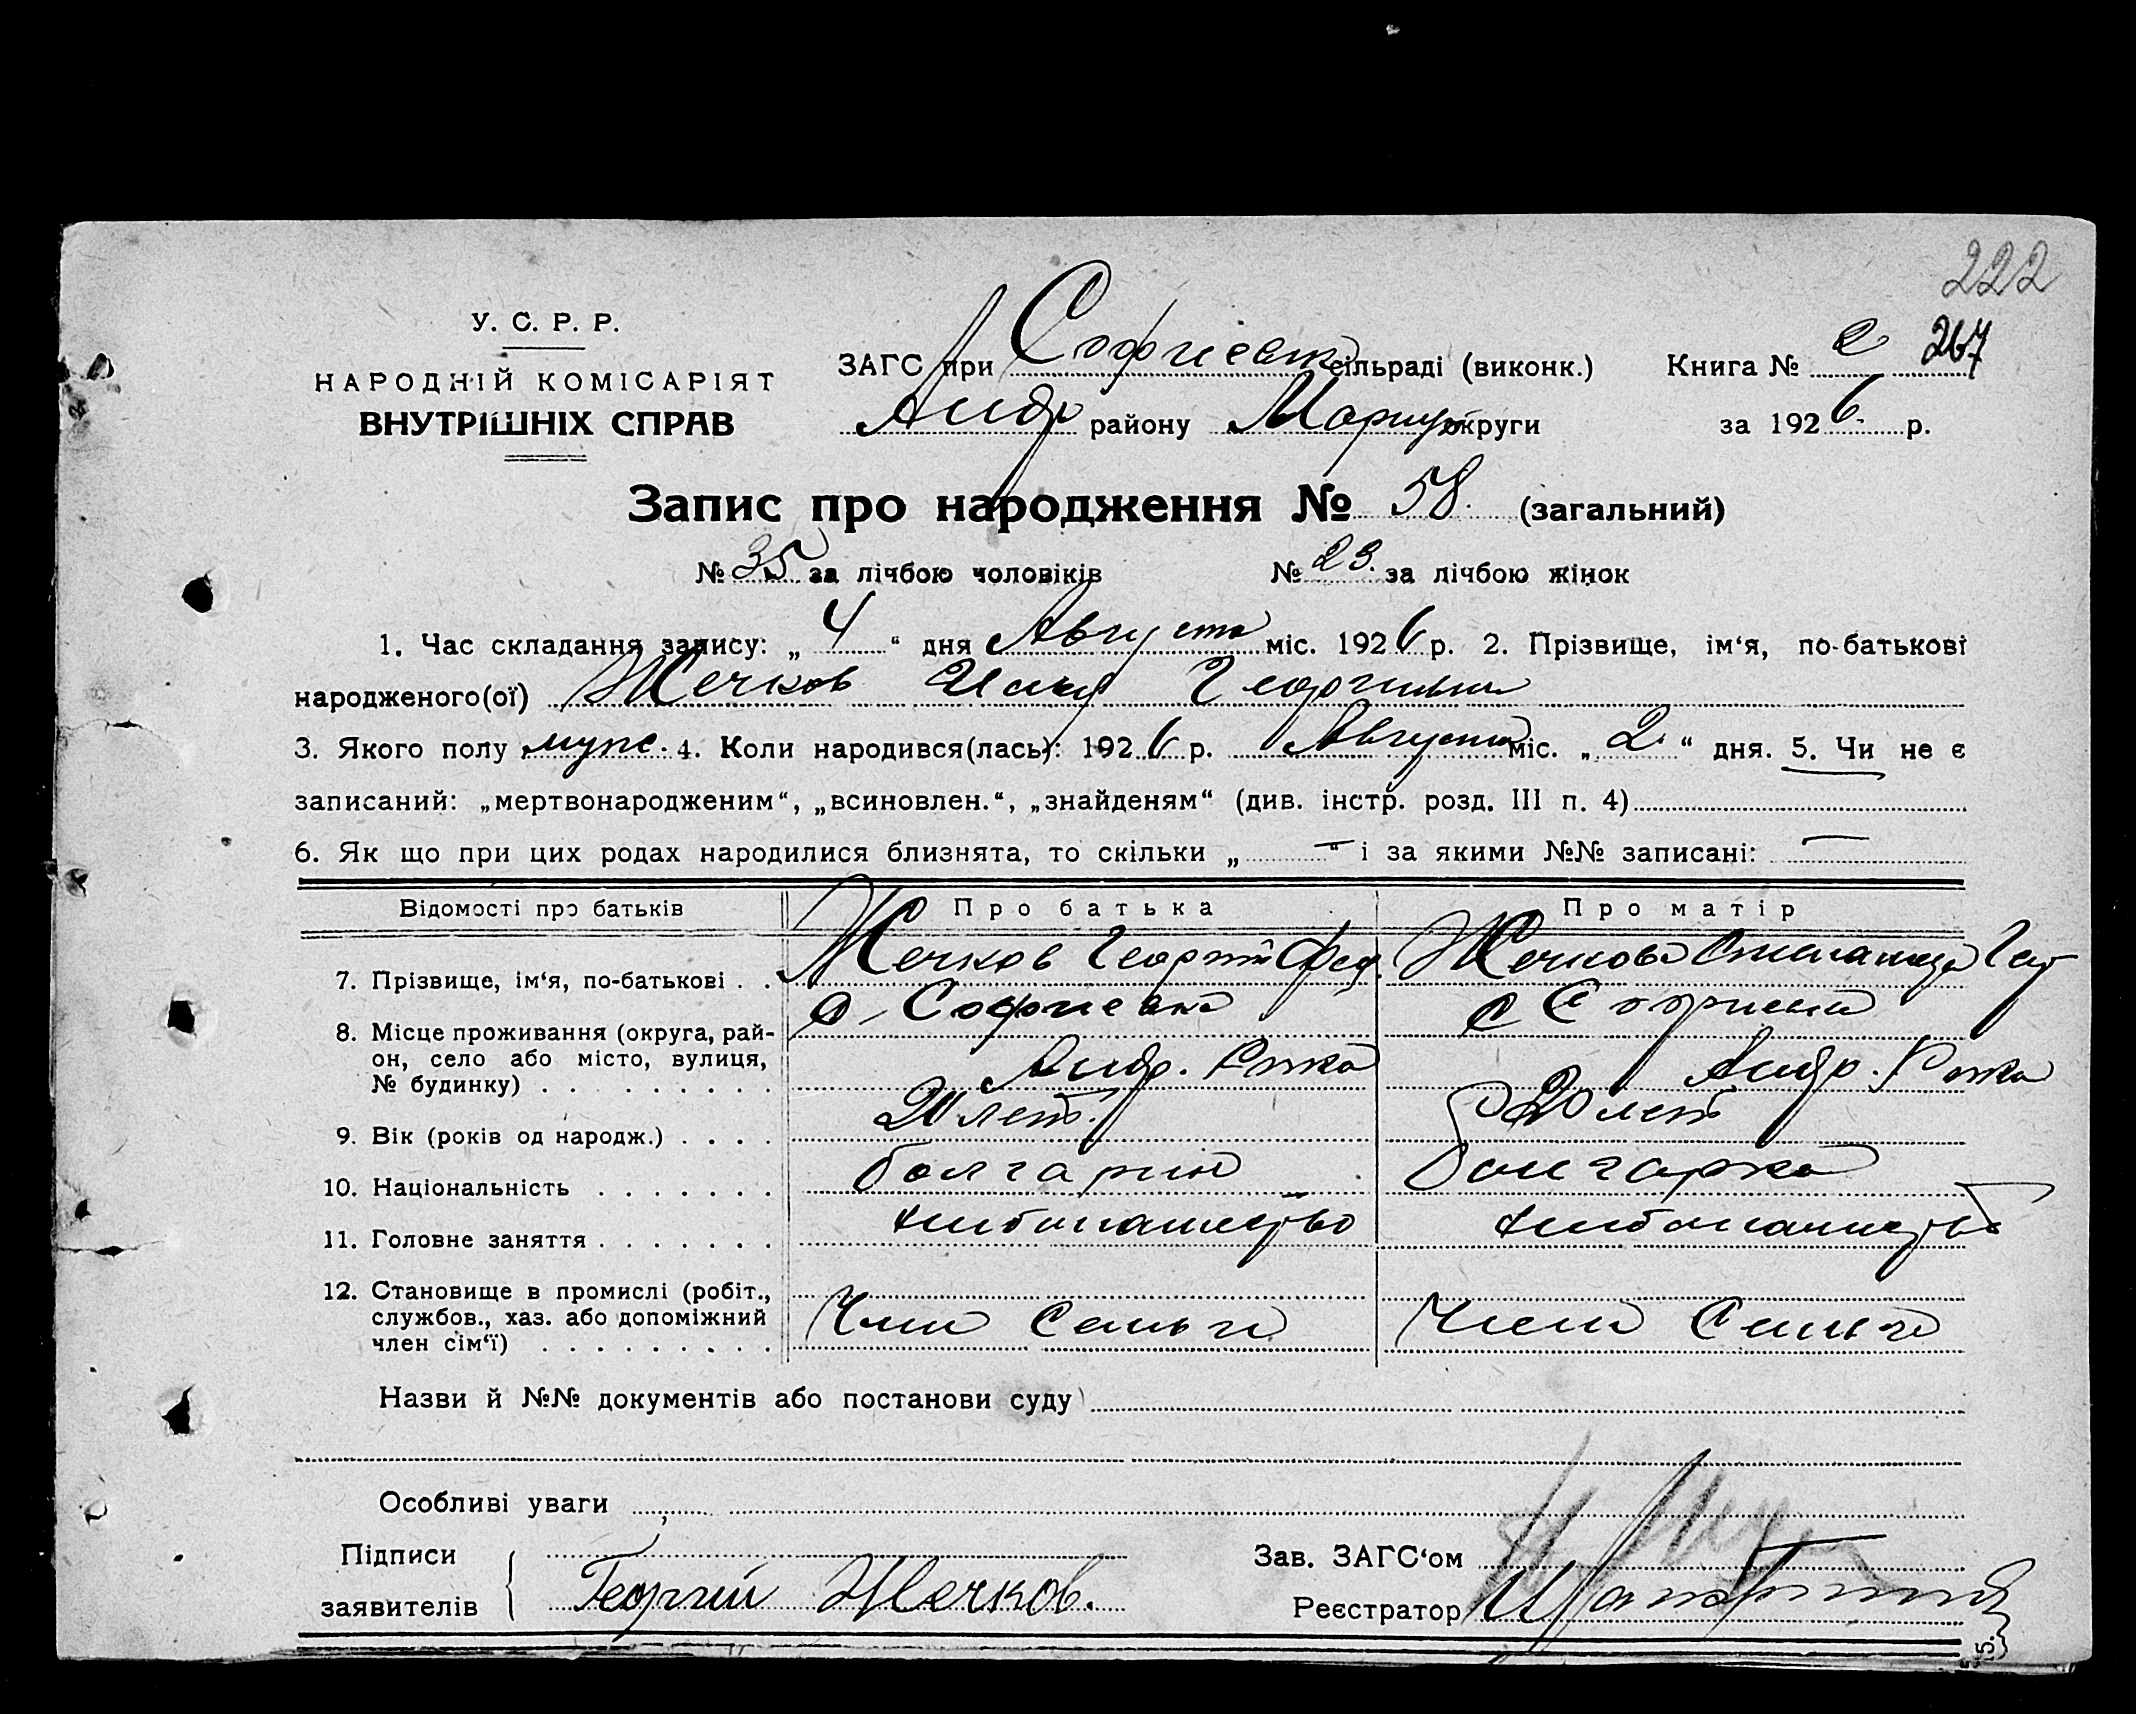 222
У. С. Р. Р.
НАРОДНІЙ КОМІСАРІЯТ
ВНУТРІШНІХ СПРАВ
ЗАГС при Софиевк сільраді (виконк.) Книга № 2 267
Андр району Мариуп округи за 1926 р.
Запис про народження № 58. (загальний)
№ 35 за лічбою чоловіків № 23. за лічбою жінок
1. Час складання запису: „ 4 “ дня Августа міс. 1926 р. 2. Прізвище, ім‘я, по-батькові
народженого(ої) Жечков Илья Георгиевич
3. Якого полу муж. 4. Коли народився(лась): 1926 р. Августа міс. „ 2 “ дня. 5. Чи не є
записаний: „мертвонародженим“, „всиновлен.“, „знайденям“ (див. інстр. розд. III п. 4)
6. Як що при цих родах народилися близнята, то скільки „ — “ і за якими №№ записані: —
Відомості про батьків Про батька Про матір
7. Прізвище, ім‘я, по-батькові . . Жечков Георгий Фед. Жечкова
8. Місце проживання (округа, рай- с. Софиевка с
он, село або місто, вулиця,
№ будинку) . . . . . . . . . Андр. Р-жка Андр. Р-жка
9. Вік (років од народж.) . . . . 20 лет. 20 лет
10. Національність . . . . . . . болгарин болгарка
11. Головне заняття . . . . . . . хлебопашество хлебопашество
12. Становище в промислі (робіт.,
службов., хаз. або допоміжний Член Семьи Член Семьи
член сім‘ї) . . . . . . . . .
Назви й №№ документів або постанови суду
Особливі уваги
Підписи Зав. ЗАГС‘ом
заявителів { Георгий Жечков. Реєстратор